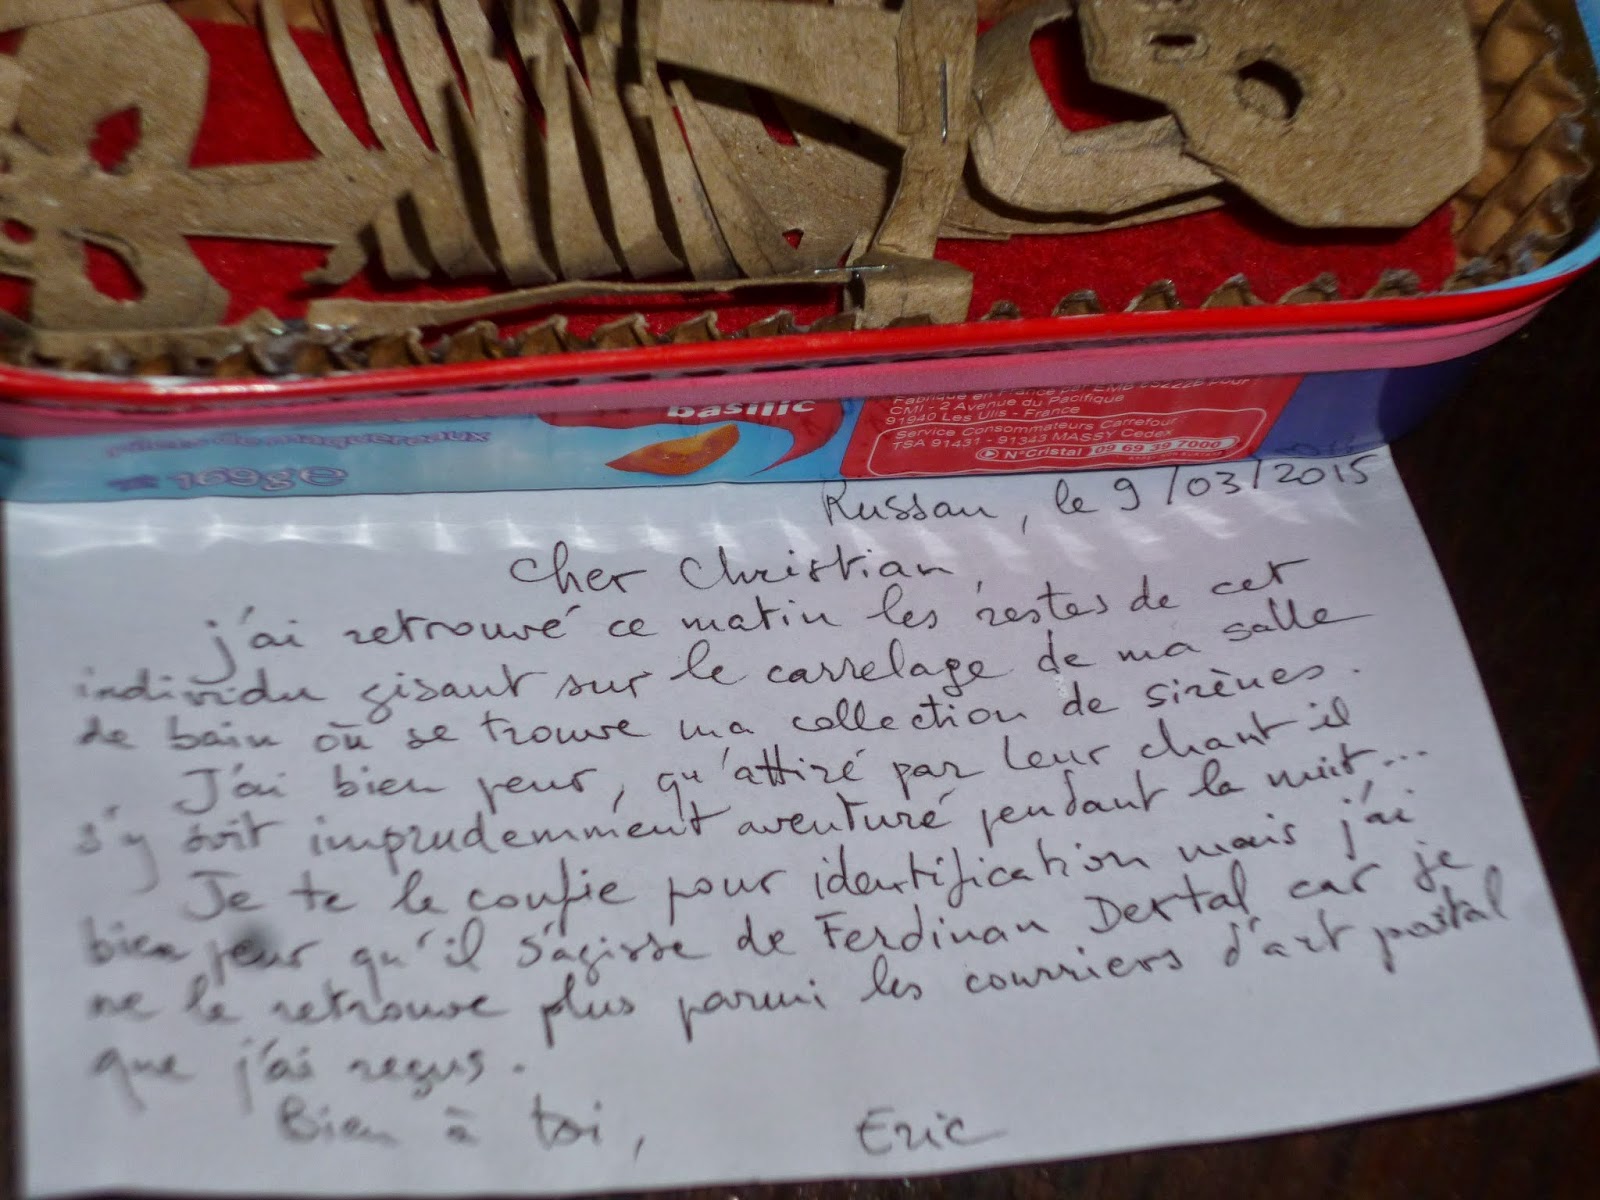 basilic
filets de maquereaux
169g e
Fabriqué en France par EMB
CMI - 2 Avenue du Pacifique
91940 Les Ulis - France
Service Consommateurs Carrefour
TSA 91431 - 91343 MASSY Cedex
N°Cristal 09 69 39 7000
Russan, le 9/03/2015
Cher Christian,
j'ai retrouvé ce matin les restes de cet
individu gisant sur le carrelage de ma salle
de bain où se trouve ma collection de sirènes.
J'ai bien peur, qu'attiré par leur chant il
s'y soit imprudemment aventuré pendant la nuit...
Je te le confie pour identification mais j'ai
bien peur qu'il s'agisse de Ferdinan Dertal car je
ne le retrouve plus parmi les courriers d'art postal
que j'ai reçus.
Bien à toi, Eric